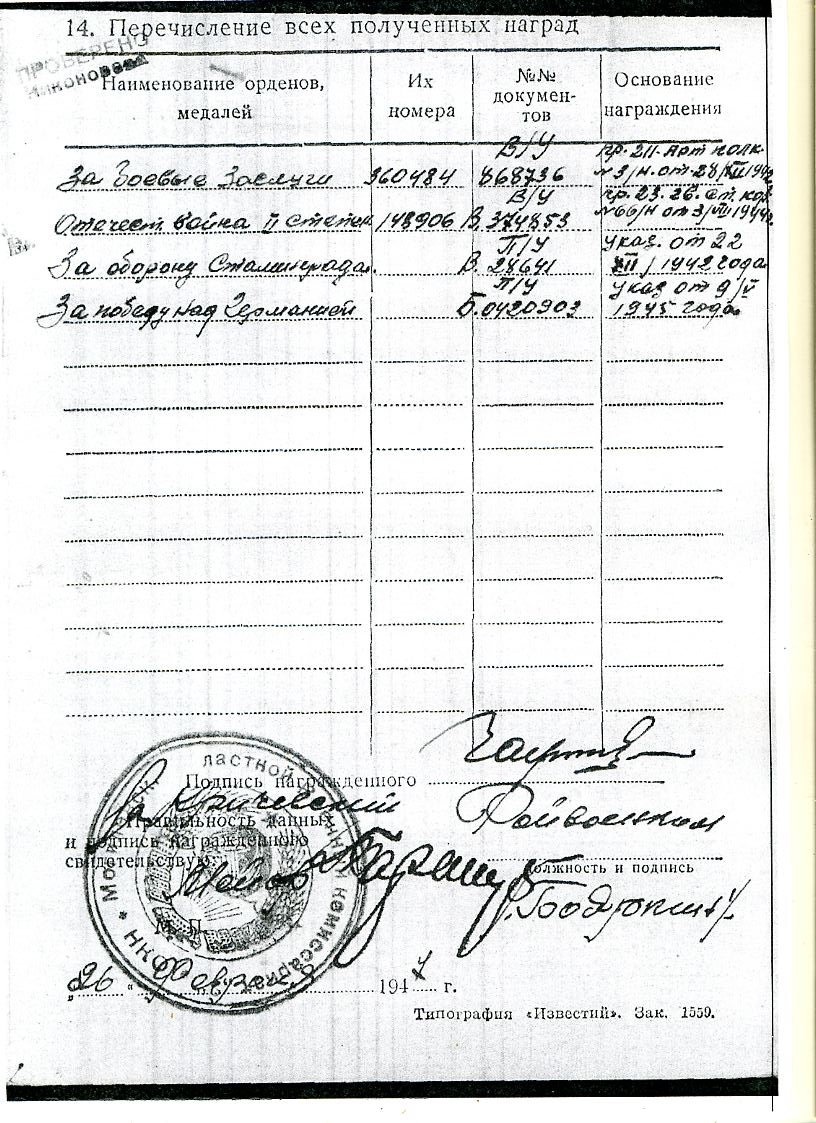 14. Перечисление всех полученных наград
ПРОВЕРЕНО
Наименование орденов, медалей
Их номера
№№ документов
Основание награждения
В/У пр. 211 арт полк.
За боевые Заслуги 360484 868736 №3/н. от 28/XII 1942
В/У пр. 23. 26. ст. кор
Отечест. война II степен 148906 В. 374853 №66/н от 3/VIII 1944г
П/У указ. от 22
За оборону Сталинграда. В. 28641 XII/1942 года
П/У указ от 9/V
За победу над Германией Б.0420903 1945 года
Подпись награжденного
За Кричевский Райвоенком
Правильность данных
и подпись награжденного
свидетельствую:
Майор
Должность и подпись
М. П.
ластной военный комиссариат
„26“ Февраля 1947 г.
Типография «Известий». Зак. 1559.